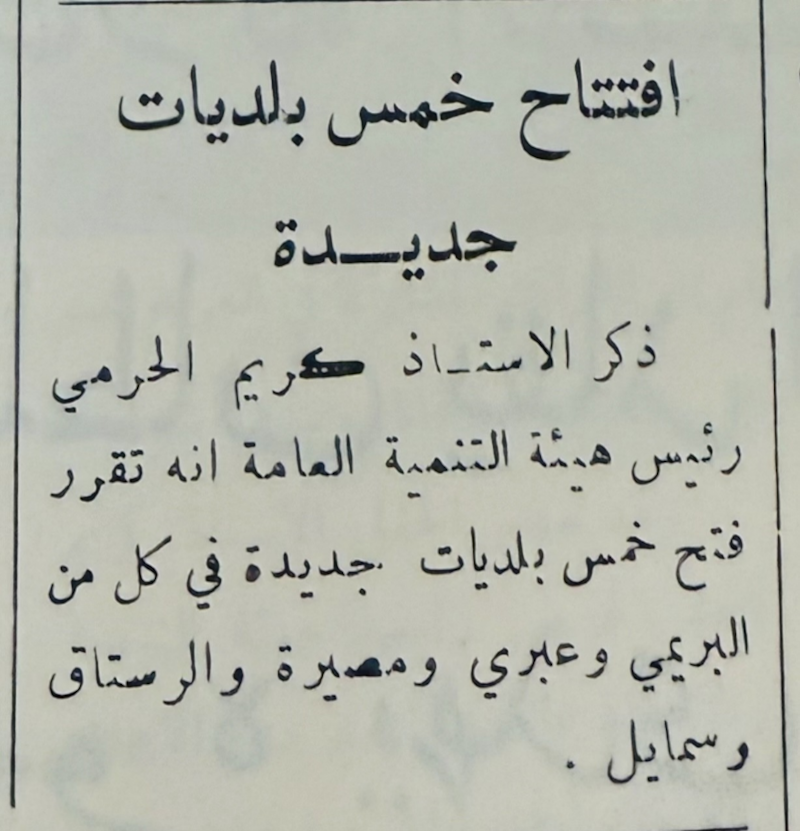 افتتاح خمس بلديات
جديـــدة
ذكر الاستـاذ كريم الحرمي
رئيس هيئة التنمية العامة انه تقرر
فتح خمس بلديات جديدة في كل من
البريمي وعبري ومصيرة والرستاق
وسمايل .